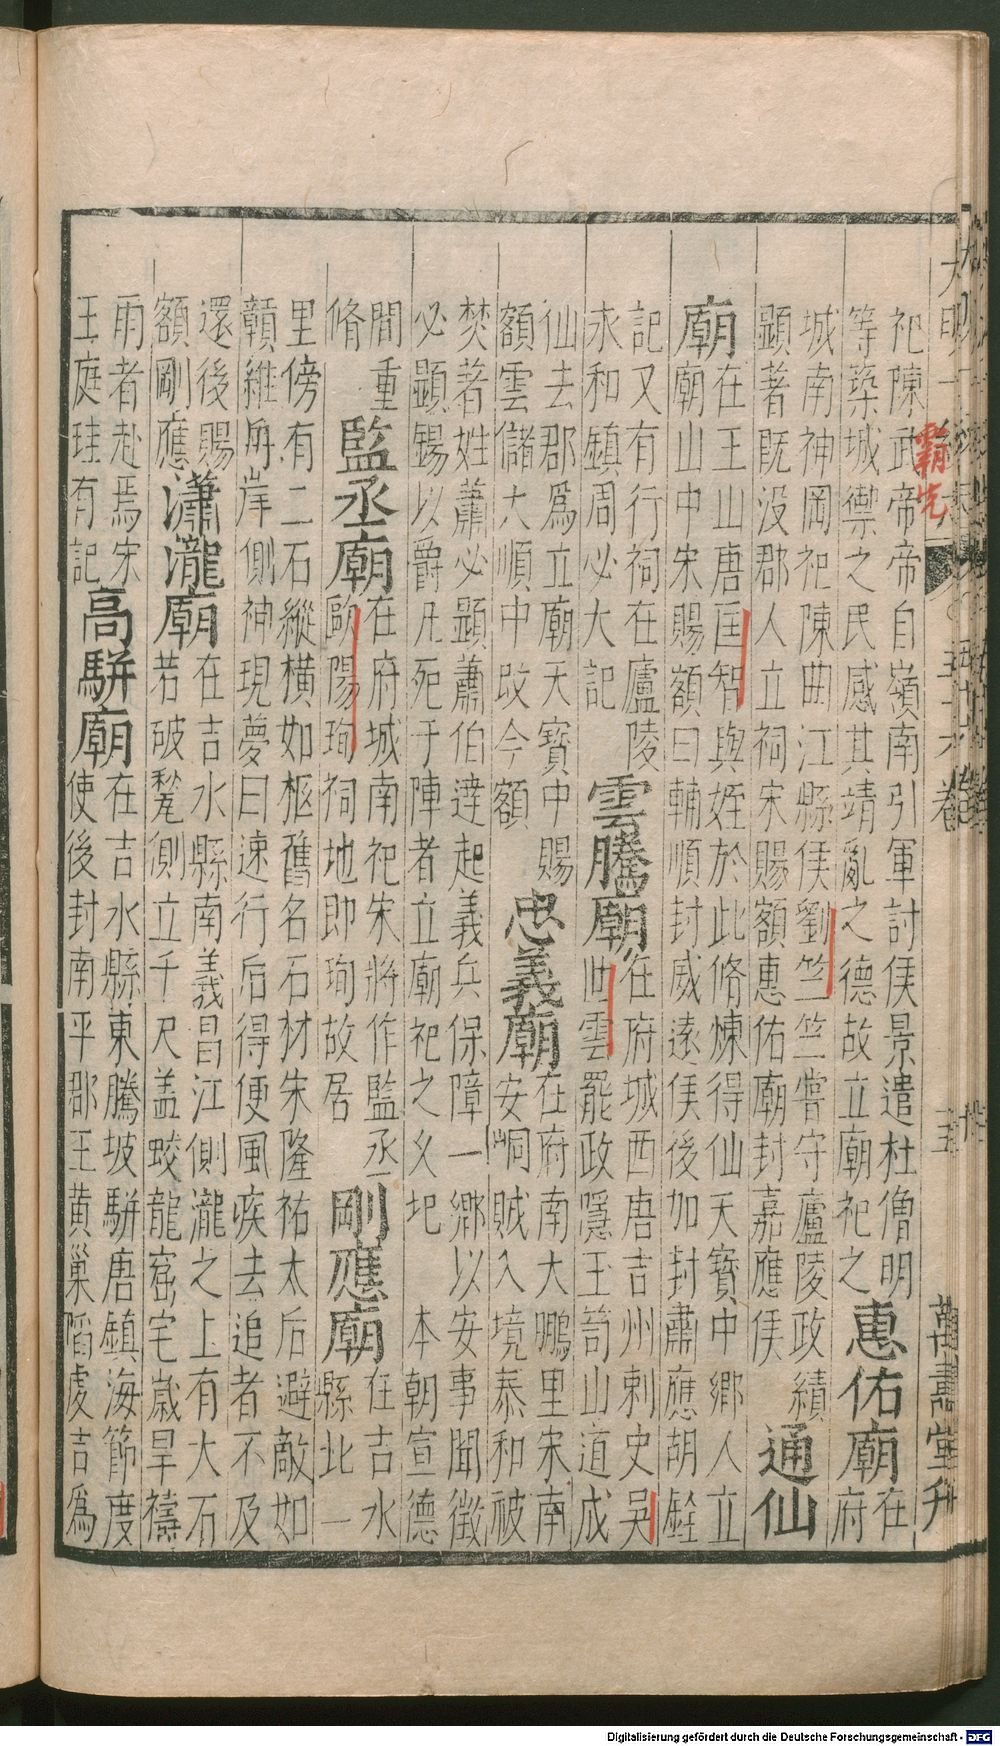 祀陳武帝帝自嶺南引軍討侯景遣杜僧明
等築城禦之民感其靖亂之德故立廟祀之惠佑廟在府
城南神岡祀陳曲江縣侯劉竺竺嘗守廬陵政績
顯著既沒郡人立祠宋賜額惠佑廟封嘉應侯通仙
廟在王山唐匡智與姪於此脩煉得仙天寶中鄉人立
廟山中宋賜額曰輔順封威遠侯後加封肅應胡銓
記又有行祠在廬陵
永和鎮周必大記雲騰廟在府城西唐吉州刺史吳
世雲罷政隱玉笥山道成
仙去郡為立廟天寶中賜
額雲儲大順中改今額忠義廟在府南大鵬里宋南
安峒賊入境泰和被
焚著姓蕭必顯蕭伯達起義兵保障一鄉以安事聞徵
必顯錫以爵凡死于陣者立廟祀之久圮 本朝宣德
間重
脩監丞廟在府城南祀宋將作監丞
歐陽珣祠地即珣故居剛應廟在吉水
縣北一
里傍有二石縱橫如柩舊名石材宋隆祐太后避敵如
贛維舟岸側神現夢曰速行后得便風疾去追者不及
還後賜
額剛應瀟瀧廟在吉水縣南義昌江側瀧之上有大石
若破甃側立千尺蓋蛟龍窟宅歲旱禱
雨者赴焉宋
王庭珪有記高駢廟在吉水縣東騰坡駢唐鎮海節度
使後封南平郡王黃巢陷虔吉為
霸先
大明一統志
五十六卷
五
萬壽堂刋
Digitalisierung gefördert durch die Deutsche Forschungsgemeinschaft - DFG